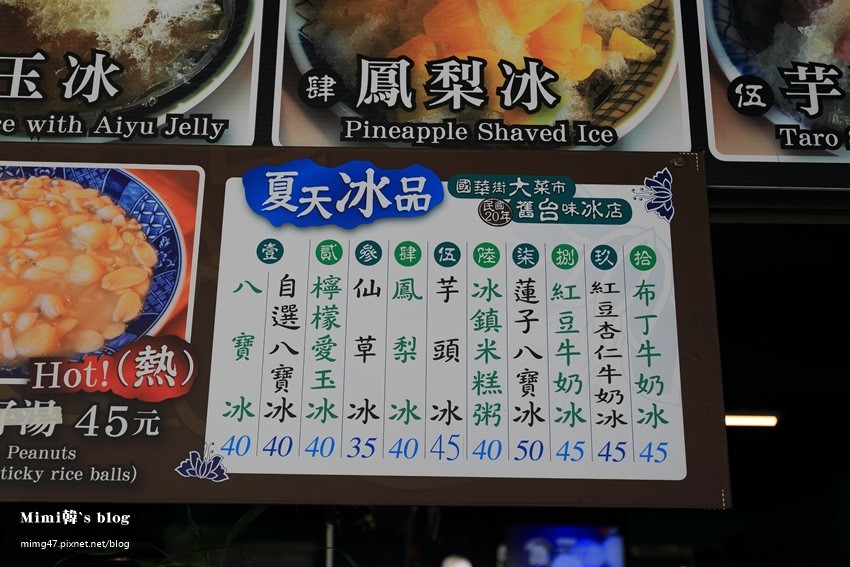 玉冰
ce with Aiyu Jelly
肆 鳳梨冰
Pineapple Shaved Ice
伍 芋
Taro S
夏天冰品
國華街大菜市
民國20年 舊台味冰店
壹 八寶冰 40
自選八寶冰 40
貳 檸檬愛玉冰 40
參 仙草冰 35
肆 鳳梨冰 40
伍 芋頭冰 45
陸 冰鎮米糕粥 40
柒 蓮子八寶冰 50
捌 紅豆牛奶冰 45
玖 紅豆杏仁牛奶冰 45
拾 布丁牛奶冰 45
Hot!(熱)
仔湯 45元
Peanuts
ticky rice balls)
Mimi韓`s blog
mimg47.pixnet.net/blog